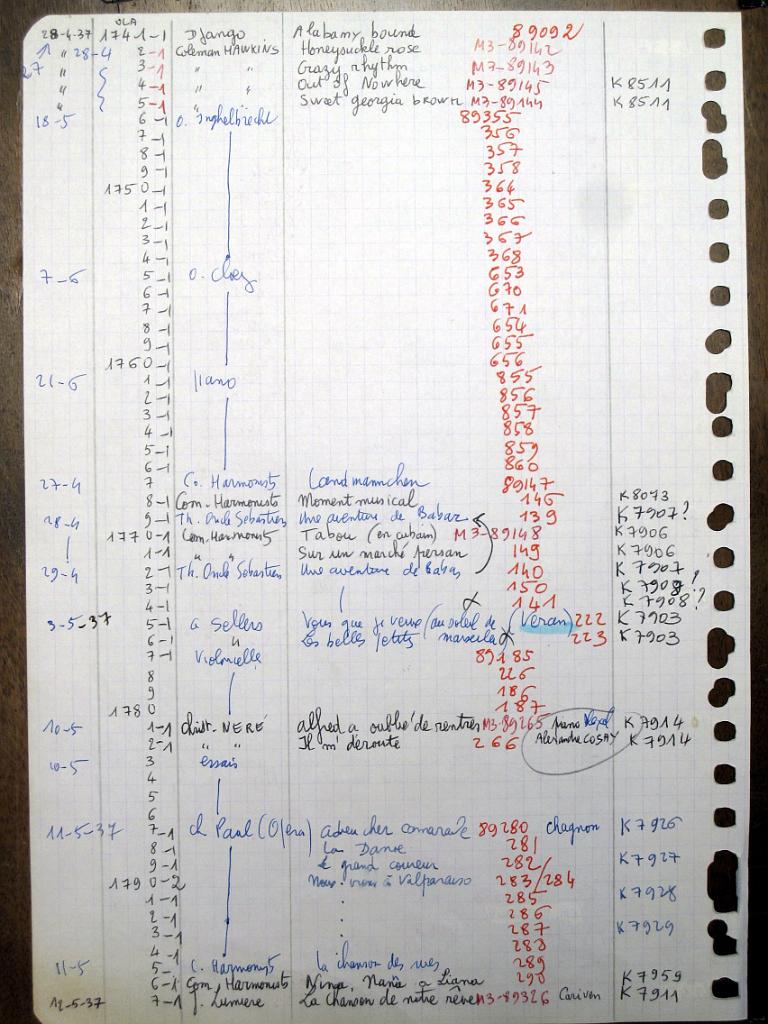 OLA
28-4-37 1741-1 Django Alabamy bound 89092
" 28-4 2-1 Coleman HAWKINS Honeysuckle rose M3-89142
27 " 3-1 " " Crazy rhythm M7-89143
" 4-1 " " Out of Nowhere M3-89145 K 8511
" 5-1 " " Sweet georgia brown M7-89144 K 8511
18-5 6-1 O. Inghelbrecht 89355
7-1 356
8-1 357
9-1 358
1750-1 364
1-1 365
2-1 366
3-1 367
4-1 368
7-6 5-1 653
6-1 670
7-1 671
8-1 654
9-1 655
1760-1 656
21-6 1-1 llano 855
2-1 856
3-1 857
4-1 858
5-1 859
6-1 860
27-4 7 Co. Harmonists Landmannchen 89147
8-1 Com. Harmonists Moment musical 146 K 8073
28-4 9-1 Th. Oncle Sébastien Une aventure de Babar 139 K 7907?
1770-1 Com. Harmonists Tabou (en cubain) M3-89148 K 7906
1-1 " " Sur un marché persan 149 K 7906
29-4 2-1 Th. Oncle Sébastien Une aventure de Babar 140 K 7907
3-1 150 K 7908?
4-1 141 K 7908?
3-5-37 5-1 a Sellers Vous que je verse (au soleil de (Veran) 222 K 7903
6-1 " Les belles petits marseille 223 K 7903
7-1 Violoncelle 89185
8 226
9 186
1780 187
10-5 1-1 Christ. NERÉ alfred a oublié de rentrer M3-89265 piano K 7914
2-1 " " Il m'déroute 266 Alexandre COSAY K 7914
10-5 3 essais
4
5
6
11-5-37 7-1 ch Paul (Opera) adieu cher camarade 89280 chagnon K 7926
8-1 La Danse 281
9-1 le grand coureur 282 K 7927
1790-2 Nous irons à Valparaiso 283/284
1-1 285 K 7928
2-1 286
3-1 287 K 7929
4-1 288
11-5 5- C. Harmonists la chanson des rues 289
6-1 Com, Harmonists Nina, Nana a Liana 290 K 7959
12-5-37 7-1 J. Lumiere La Chanson de nôtre rêve M3-89326 Cariven K 7911